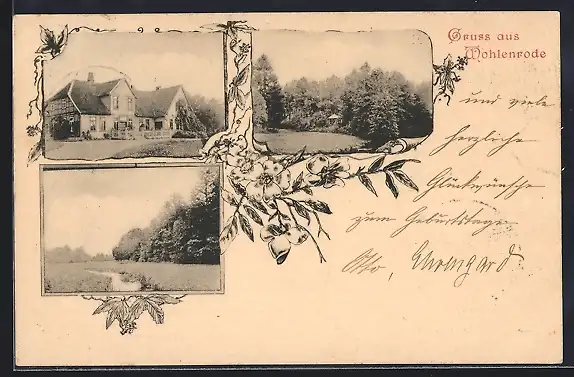 Gruss aus
Wohlenrode
und viele
herzliche
Glückwünsche
zum Geburtstage
Otto, Ehrengard